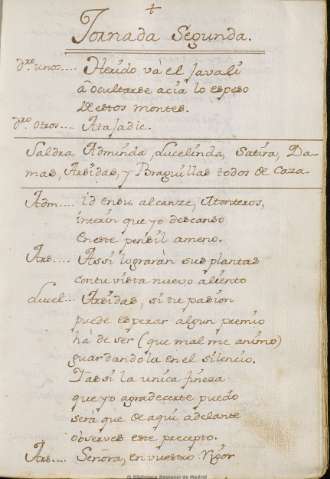 Jornada Segunda.
unos.... Herido và el Javalì
â ocultarse acia lo espeso
de estos montes.
otros... Atajadle.
Saldra Adminda, Lucelinda, Satira, Da-
mas, Arsidas, y Poraguillas todos de Caza.
Adm.... id en su alcanze, Monteros,
interin que yo descanso
en este pensil ameno.
Ars.... Assi lograràn sus plantas
con tu vista nuevo aliento
Lucel... Arsidas, si tu pasion
puede esperar algun premio
ha de ser (que mal me animo)
guardandola en el silencio.
I assi la unica fineza
que yo agradecerte puedo
serà que de aqui adelante
observes este precepto.
Ars.... Señora, en vuestro rigor
Biblioteca Nacional de Madrid